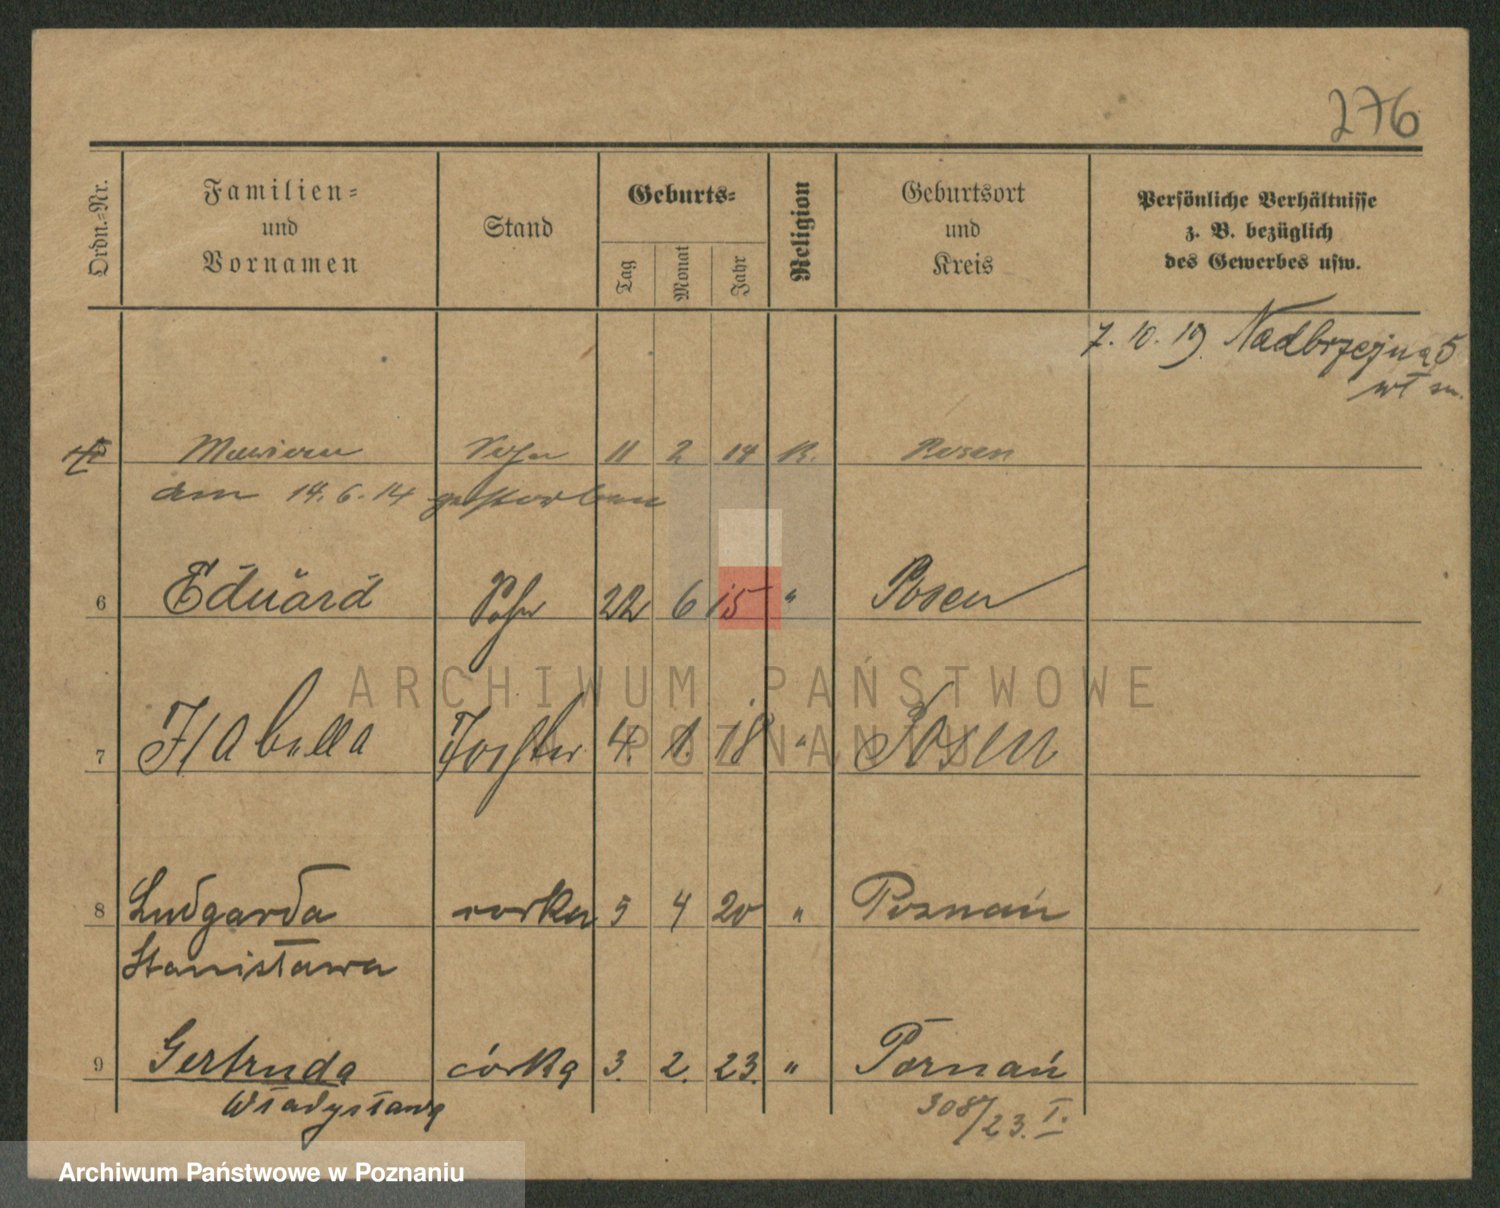 276
Ordn.-Nr.
Familien-
und
Vornamen
Stand
Geburts-
Tag
Monat
Jahr
Religion
Geburtsort
und
Kreis
Persönliche Verhältnisse
z. B. bezüglich
des Gewerbes usw.
7. 10. 19. Nadbrzejna 5
5 Marian Sohn 11 2 14 K. Posen
am 14. 6. 14 gestorben
6 Eduard Sohn 22 6 15 " Posen
7 Isabella Tochter 4. 1. 18 " Posen
8 Ludgarda corka 5 4 20 " Poznań
Stanisława
9 Gertruda córka 3. 2. 23. " Poznań
Władysława 308/23. I.
ARCHIWUM PAŃSTWOWE
W POZNANIU
Archiwum Państwowe w Poznaniu